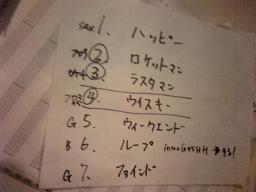 1. ハッピー
② ロケットマン
③ ラスタマン
④ ウイスキー
G 5. ウィークエンド
B 6. ループ
G 7. ファインド